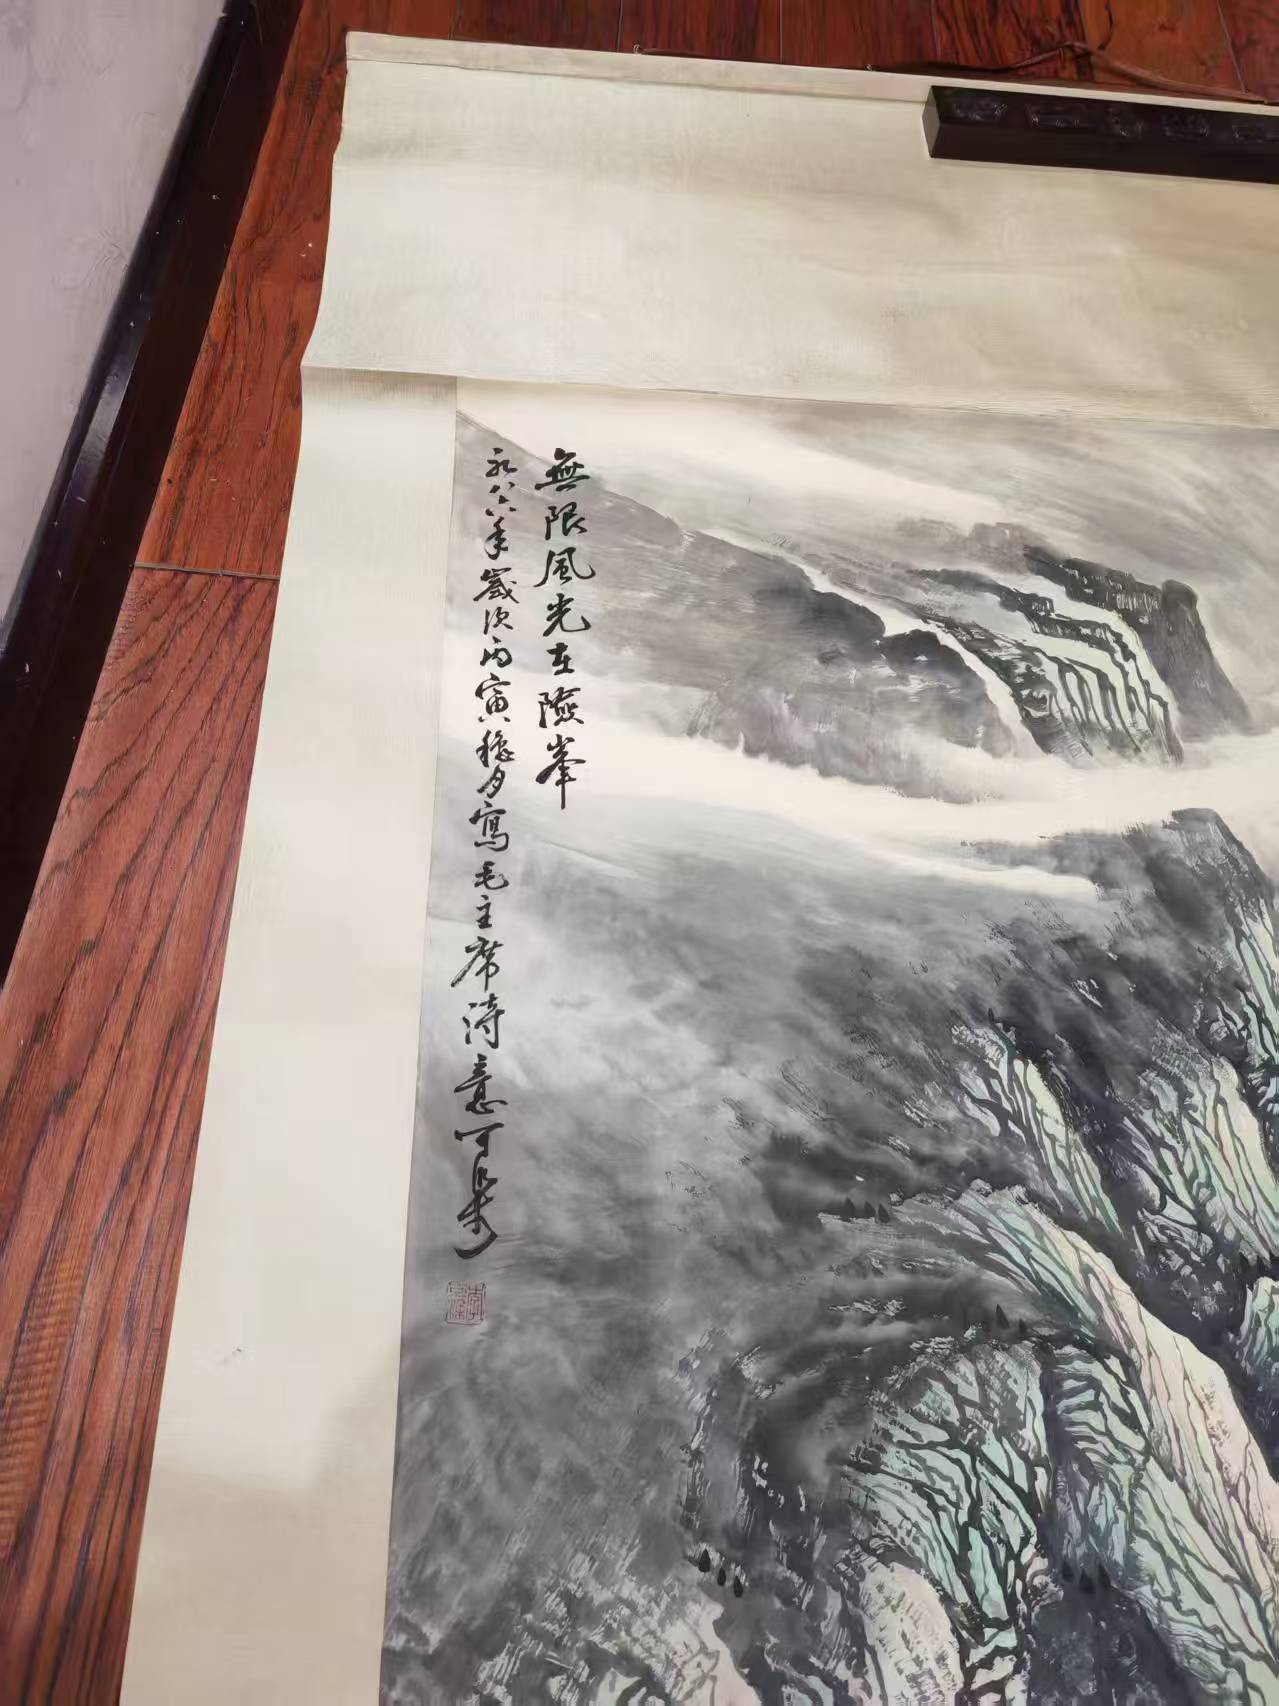 無限風光在險峯
一九八六年歲次丙寅穐月寫毛主席詩意可染